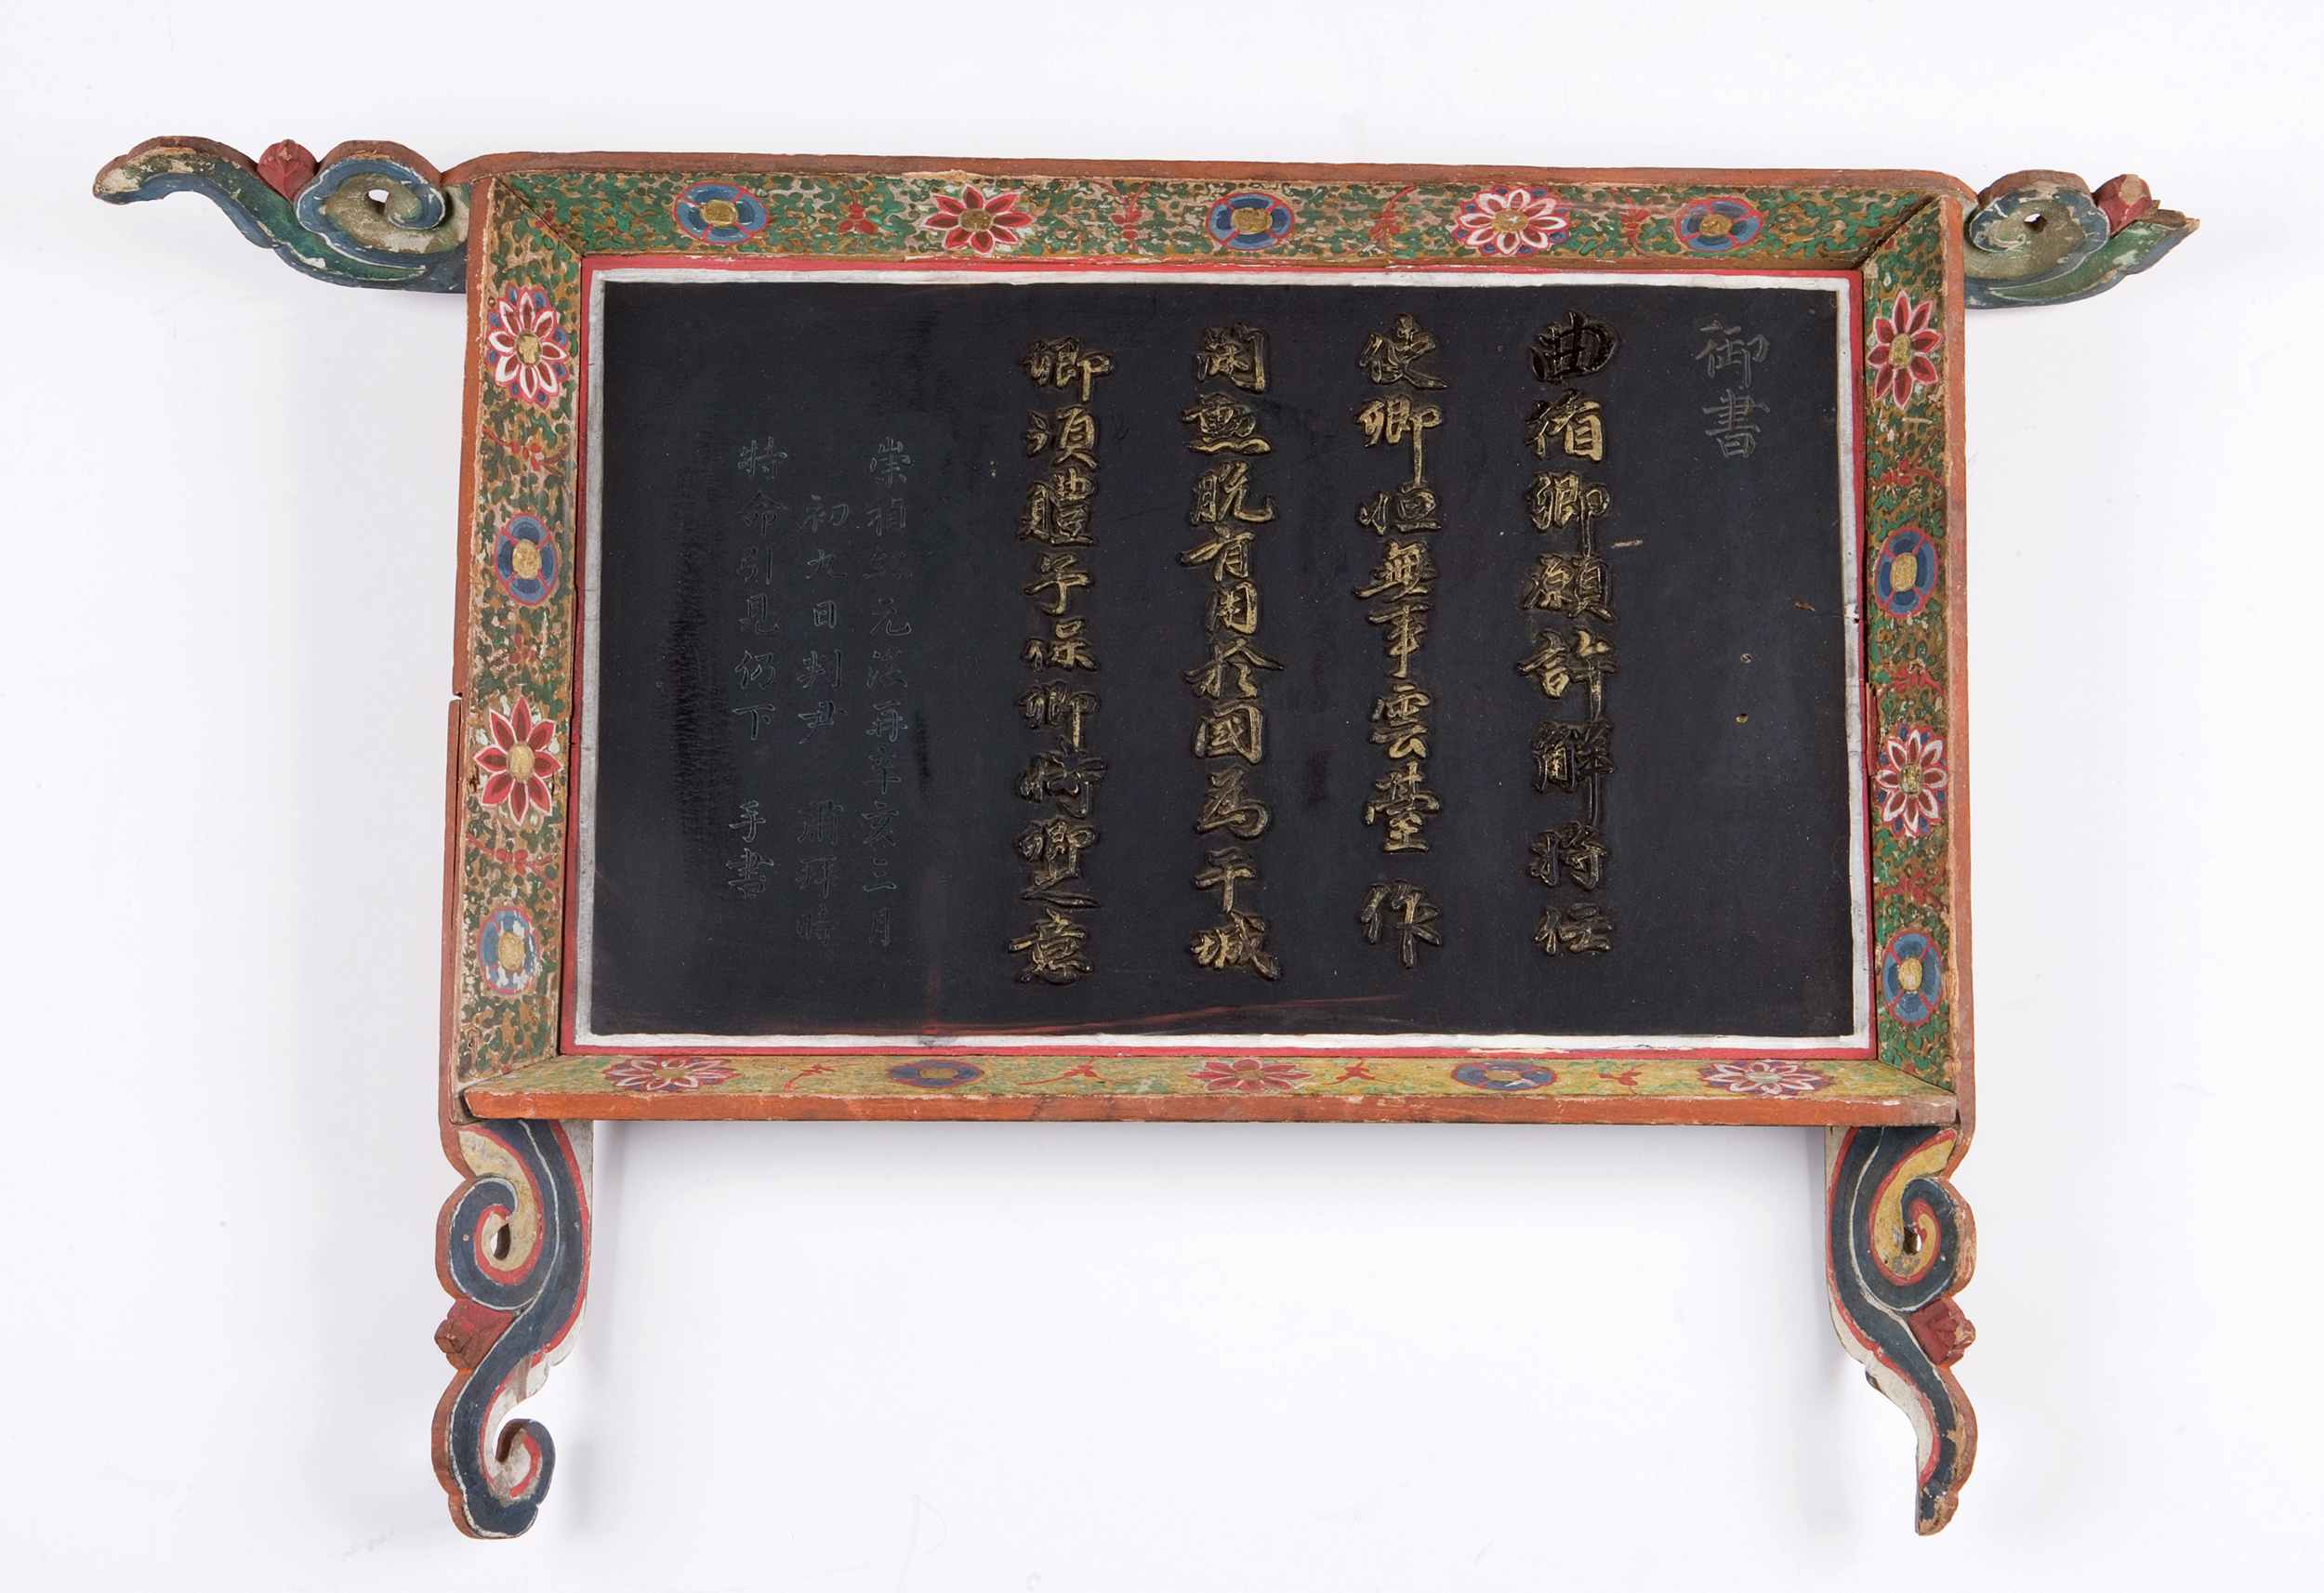 御書
曲循卿願許解將任
使卿恒無事雲臺作
閑勲脫有用於國為干城
卿須體予保卿將卿之意
崇禎紀元後再辛亥三月
初九日判尹 肅拜時
特命引見仍下 手書